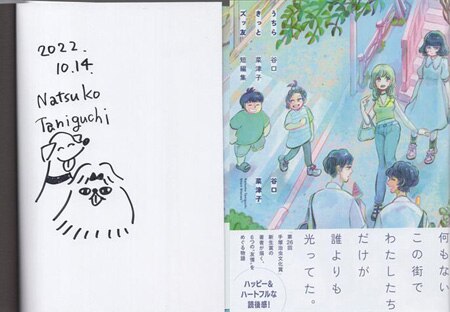 2022.
10.14.
Natsuko
Taniguchi
うちら
きっと
ズッ友
谷口
菜津子
短編集
谷口
菜津子
何もない
この街で
わたしたち
だけが
誰よりも
光ってた。
第26回
手塚治虫文化賞
新生賞の
著者が描く、
6つの“友情”を
めぐる物語
ハッピー&
ハートフルな
読後感!